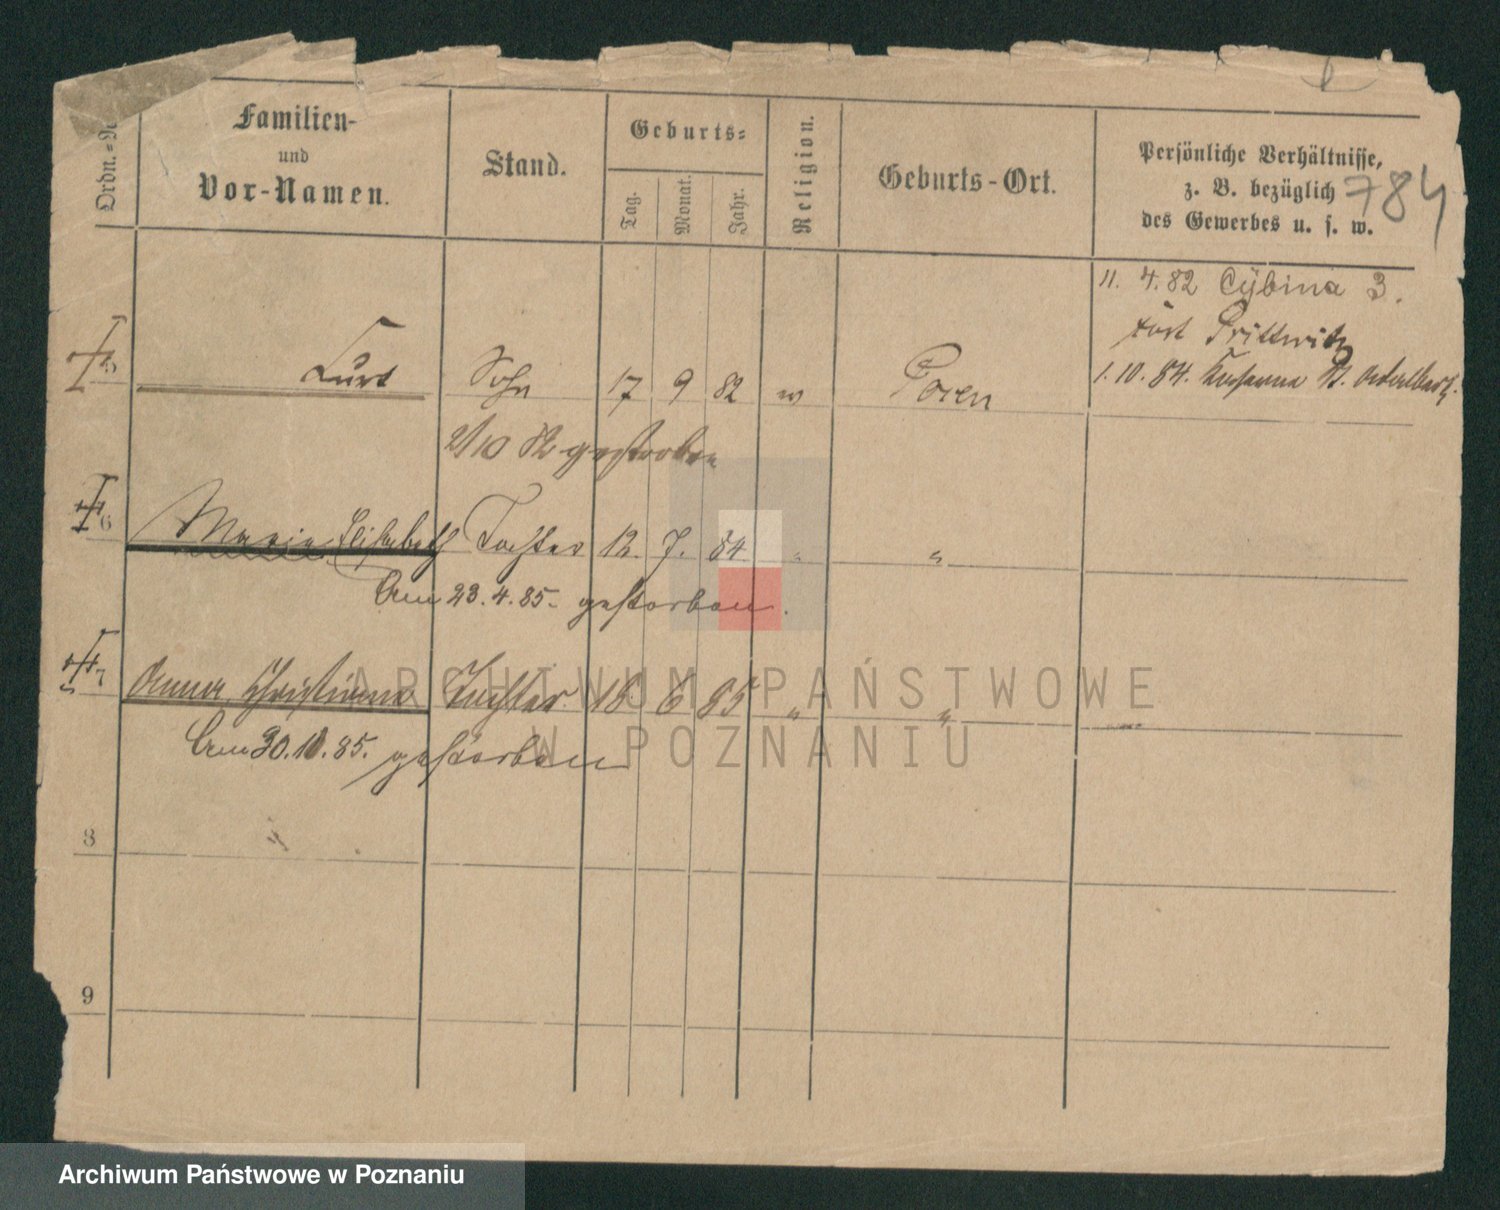 Ordn.=N
Familien-
und
Vor-Namen.
Stand.
Geburts=
Tag.
Monat.
Jahr.
Religion.
Geburts-Ort.
Persönliche Verhältnisse,
z. B. bezüglich
des Gewerbes u. s. w.
784
11. 4. 82 Cybina 3.
Fort Prittwitz
1. 10. 84.
5 Kurt Sohn 17 9 82 Posen
2/10 82 gestorben
6 Marie Elisabeth Tochter 12. 7. 84. " "
Am 23.4.85. gestorben.
7 Anna Christiana Tochter 18. 6 85 " "
Am 30.10.85. gestorben
8
9
ARCHIWUM PAŃSTWOWE
W POZNANIU
Archiwum Państwowe w Poznaniu